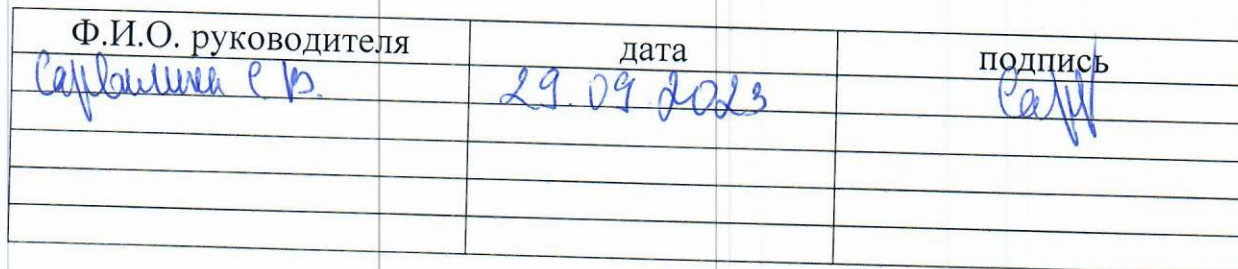 Ф.И.О. руководителя дата подпись
Сарвилина С В. 29.09.2023